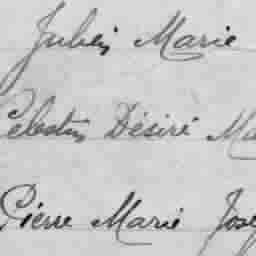 Julien Marie
Celestin Désiré Ma
Pierre Marie Jose